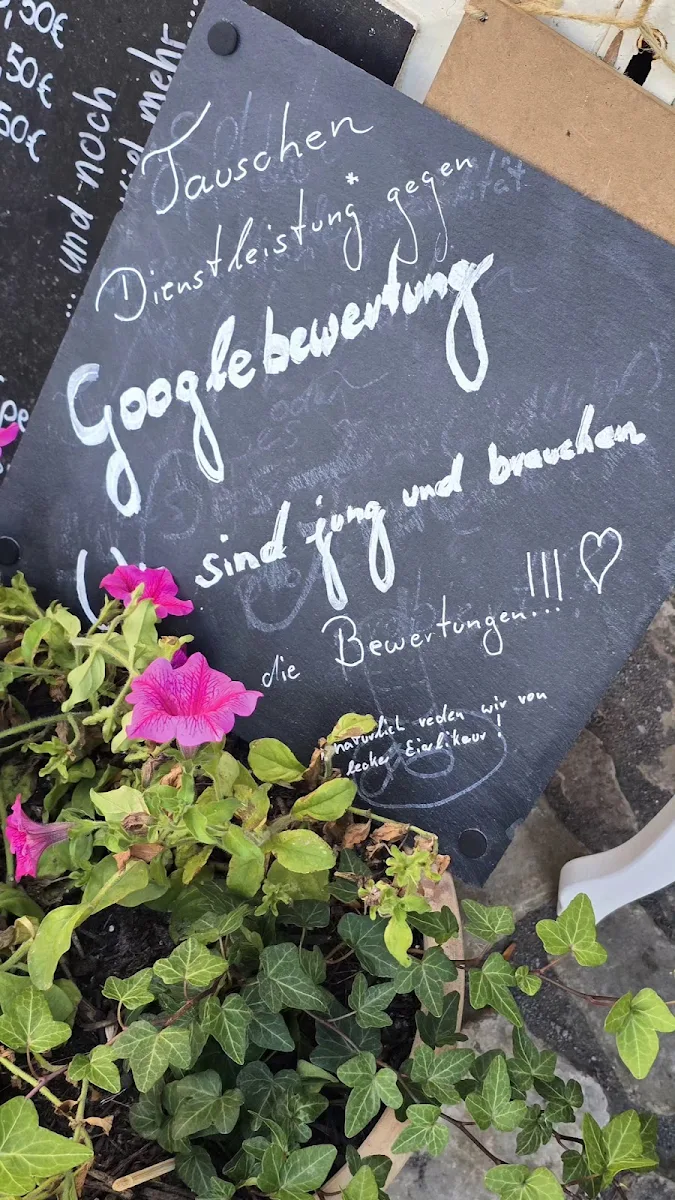 ,50€
,50€
50€
... und noch
viel mehr...
Tauschen
Dienstleistung* gegen
Googlebewertung
sind jung und brauchen
die Bewertungen...!!! ♡
natürlich reden wir von
lecker Eierlikör!